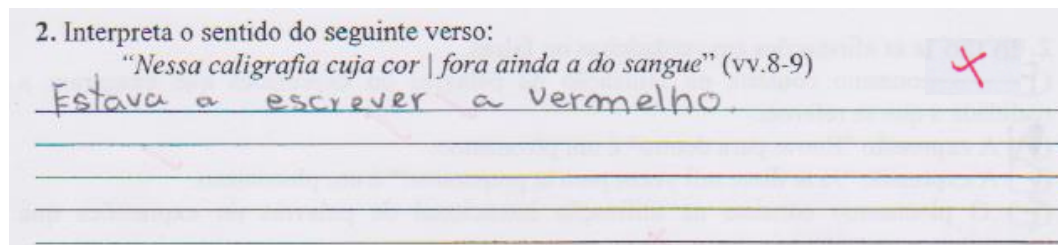 2. Interpreta o sentido do seguinte verso:
“Nessa caligrafia cuja cor | fora ainda a do sangue” (vv.8-9)
Estava a escrever a vermelho.